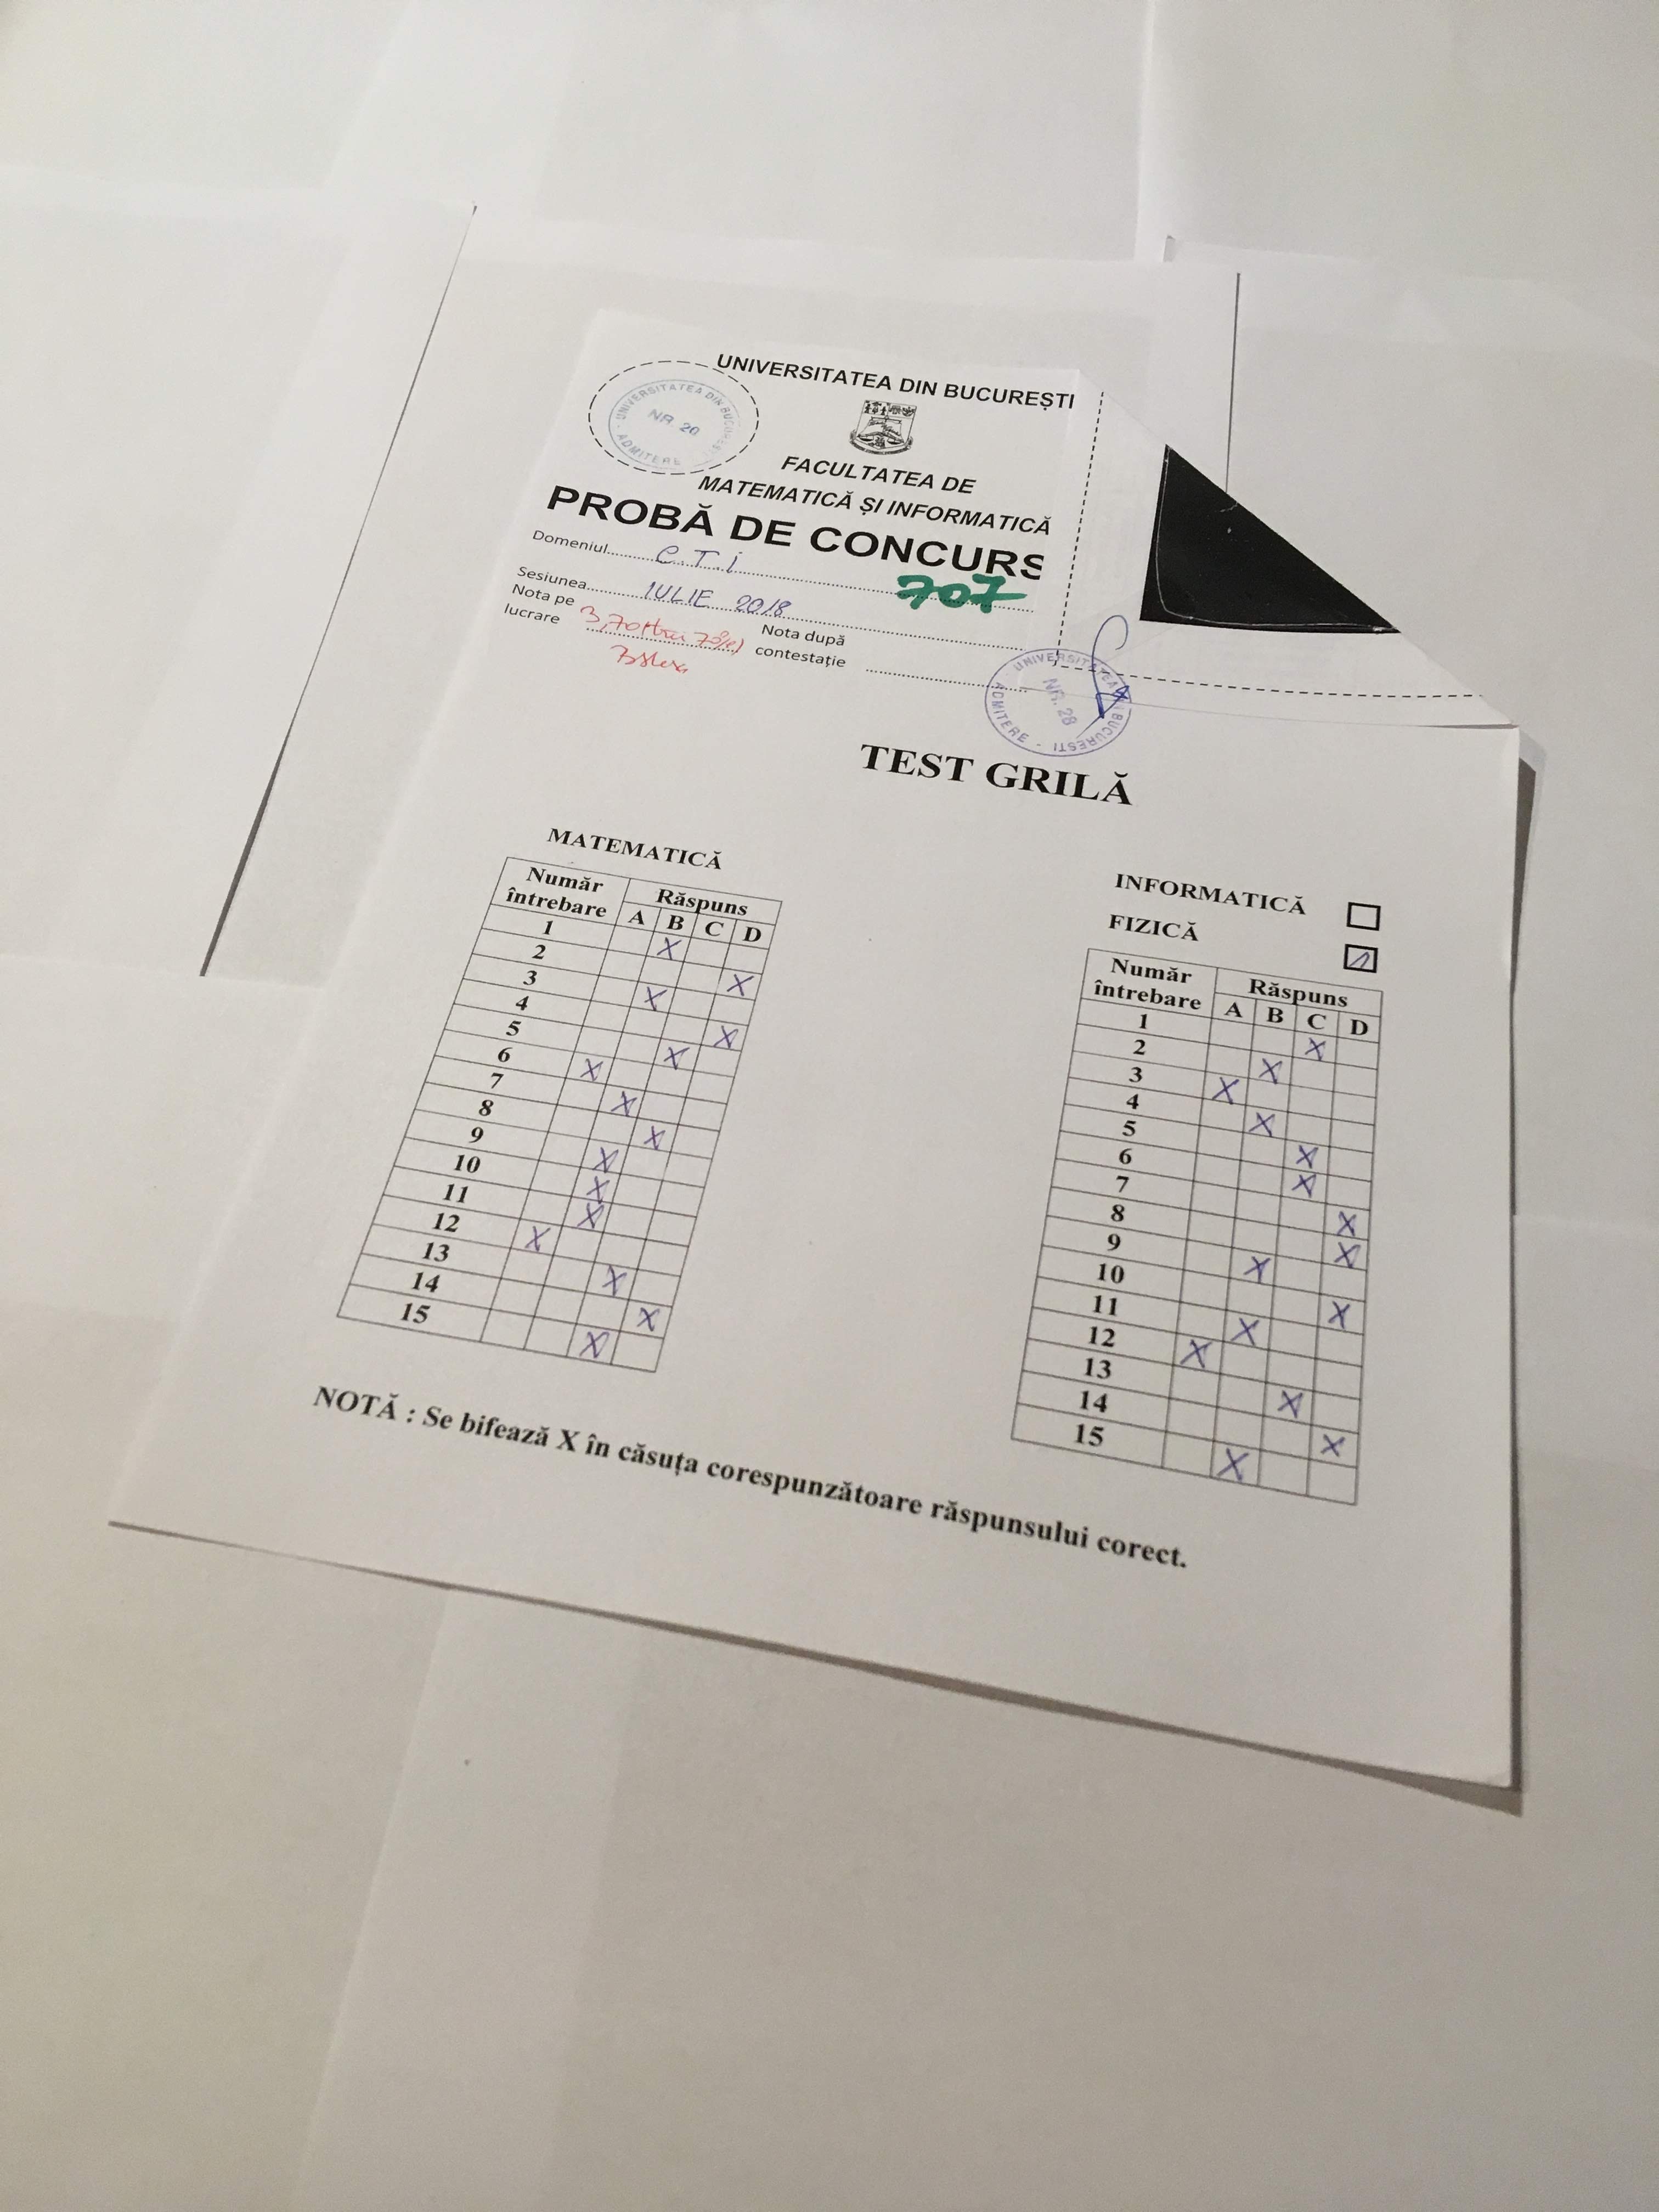 UNIVERSITATEA DIN BUCUREȘTI
UNIVERSITATEA DIN BUCUREȘTI
NR. 20
ADMITERE
FACULTATEA DE
MATEMATICĂ ȘI INFORMATICĂ
PROBĂ DE CONCURS
Domeniul C.T.I
707
Sesiunea IULIE 2018
Nota pe lucrare 3,70
Nota după contestație
UNIVERSITATEA DIN BUCUREȘTI - ADMITERE -
NR. 28
TEST GRILĂ
MATEMATICĂ
Număr întrebare Răspuns
A B C D
1 X
2 X
3 X
4 X
5 X
6 X
7 X
8 X
9 X
10 X
11 X
12 X
13 X
14 X
15 X
INFORMATICĂ
FIZICĂ
Număr întrebare Răspuns
A B C D
1 X
2 X
3 X
4 X
5 X
6 X
7 X
8 X
9 X
10 X
11 X
12 X
13 X
14 X
15 X
NOTĂ : Se bifează X în căsuța corespunzătoare răspunsului corect.